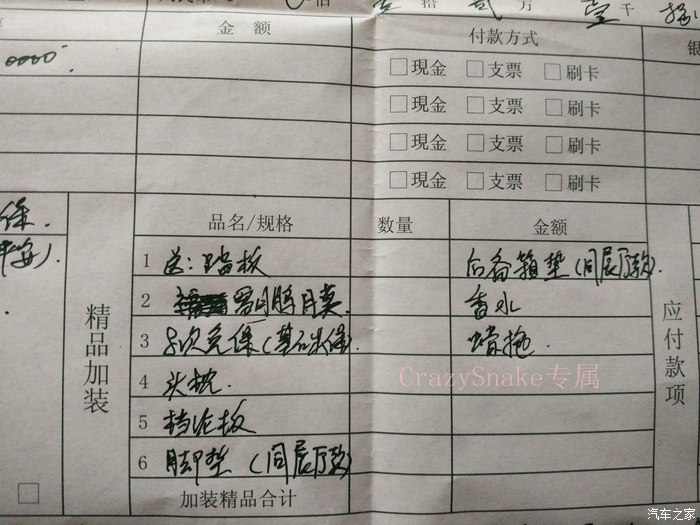 佰 壹 拾 贰 万 壹 千
金 额 付款方式
0000 □現金 □支票 □刷卡
□現金 □支票 □刷卡
□現金 □支票 □刷卡
□現金 □支票 □刷卡
保.
品名/规格 数量 金额
平安)
精品加装
应付款项
1 送:踏板 后备箱垫(同展厅款).
2 膜 香水
3 8次免保(基础保) 蜡拖.
4 头枕.
5 挡泥板
6 脚垫 (同展厅款)
加装精品合计
CrazySnake专属
汽车之家